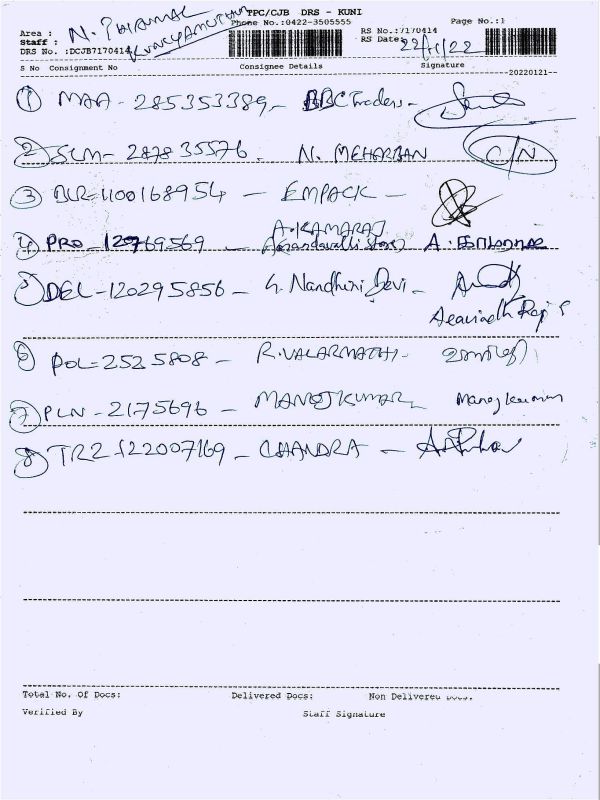 TPC/CJB DRS - KUNI
Phone No.:0422-3505555
Page No.:1
Area :
Staff : N. PHIRAMAL
RS No.:7170414
RS Date: 22/1/22
DRS No. :DCJB7170414
S No Consignment No Consignee Details Signature
--20220121--
1 MAA - 285353389 - BBC Traders -
2 SLM - 287835576. N. MEHARBAN C/N
3 BLR - 1100168954 - EMPACK -
4 PRO - 12769569 - A. KAMARAJ
5 DEL - 120295856 - G. Nandhini Devi -
6 POL - 2525808 - R. VALARMATHI -
7 PLN - 2175696 - MANOJ KUMAR Manoj kumar
8 TRZ 122007169 - CHANDRA -
Total No. Of Docs: Delivered Docs: Non Delivered Docs:
Verified By Staff Signature